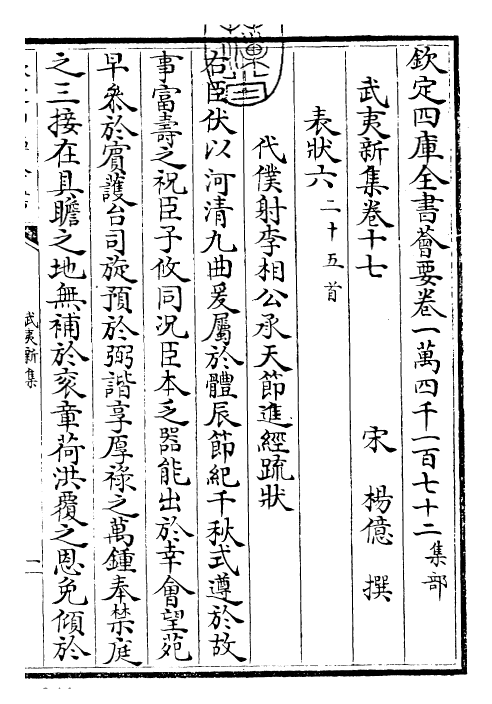 欽定四庫全書薈要卷一萬四千一百七十二集部
武夷新集卷十七
宋 楊億 撰
表狀六二十五首
代僕射李相公承天節進經疏狀
右臣伏以河清九曲爰屬於體辰節紀千秋式遵於故
事富壽之祝臣子攸同況臣本乏器能出於幸會望苑
早叅於賓護台司旋預於弼諧享厚祿之萬鍾奉禁庭
之三接在具瞻之地無補於衮章荷洪覆之恩免傾於
武夷新集
一